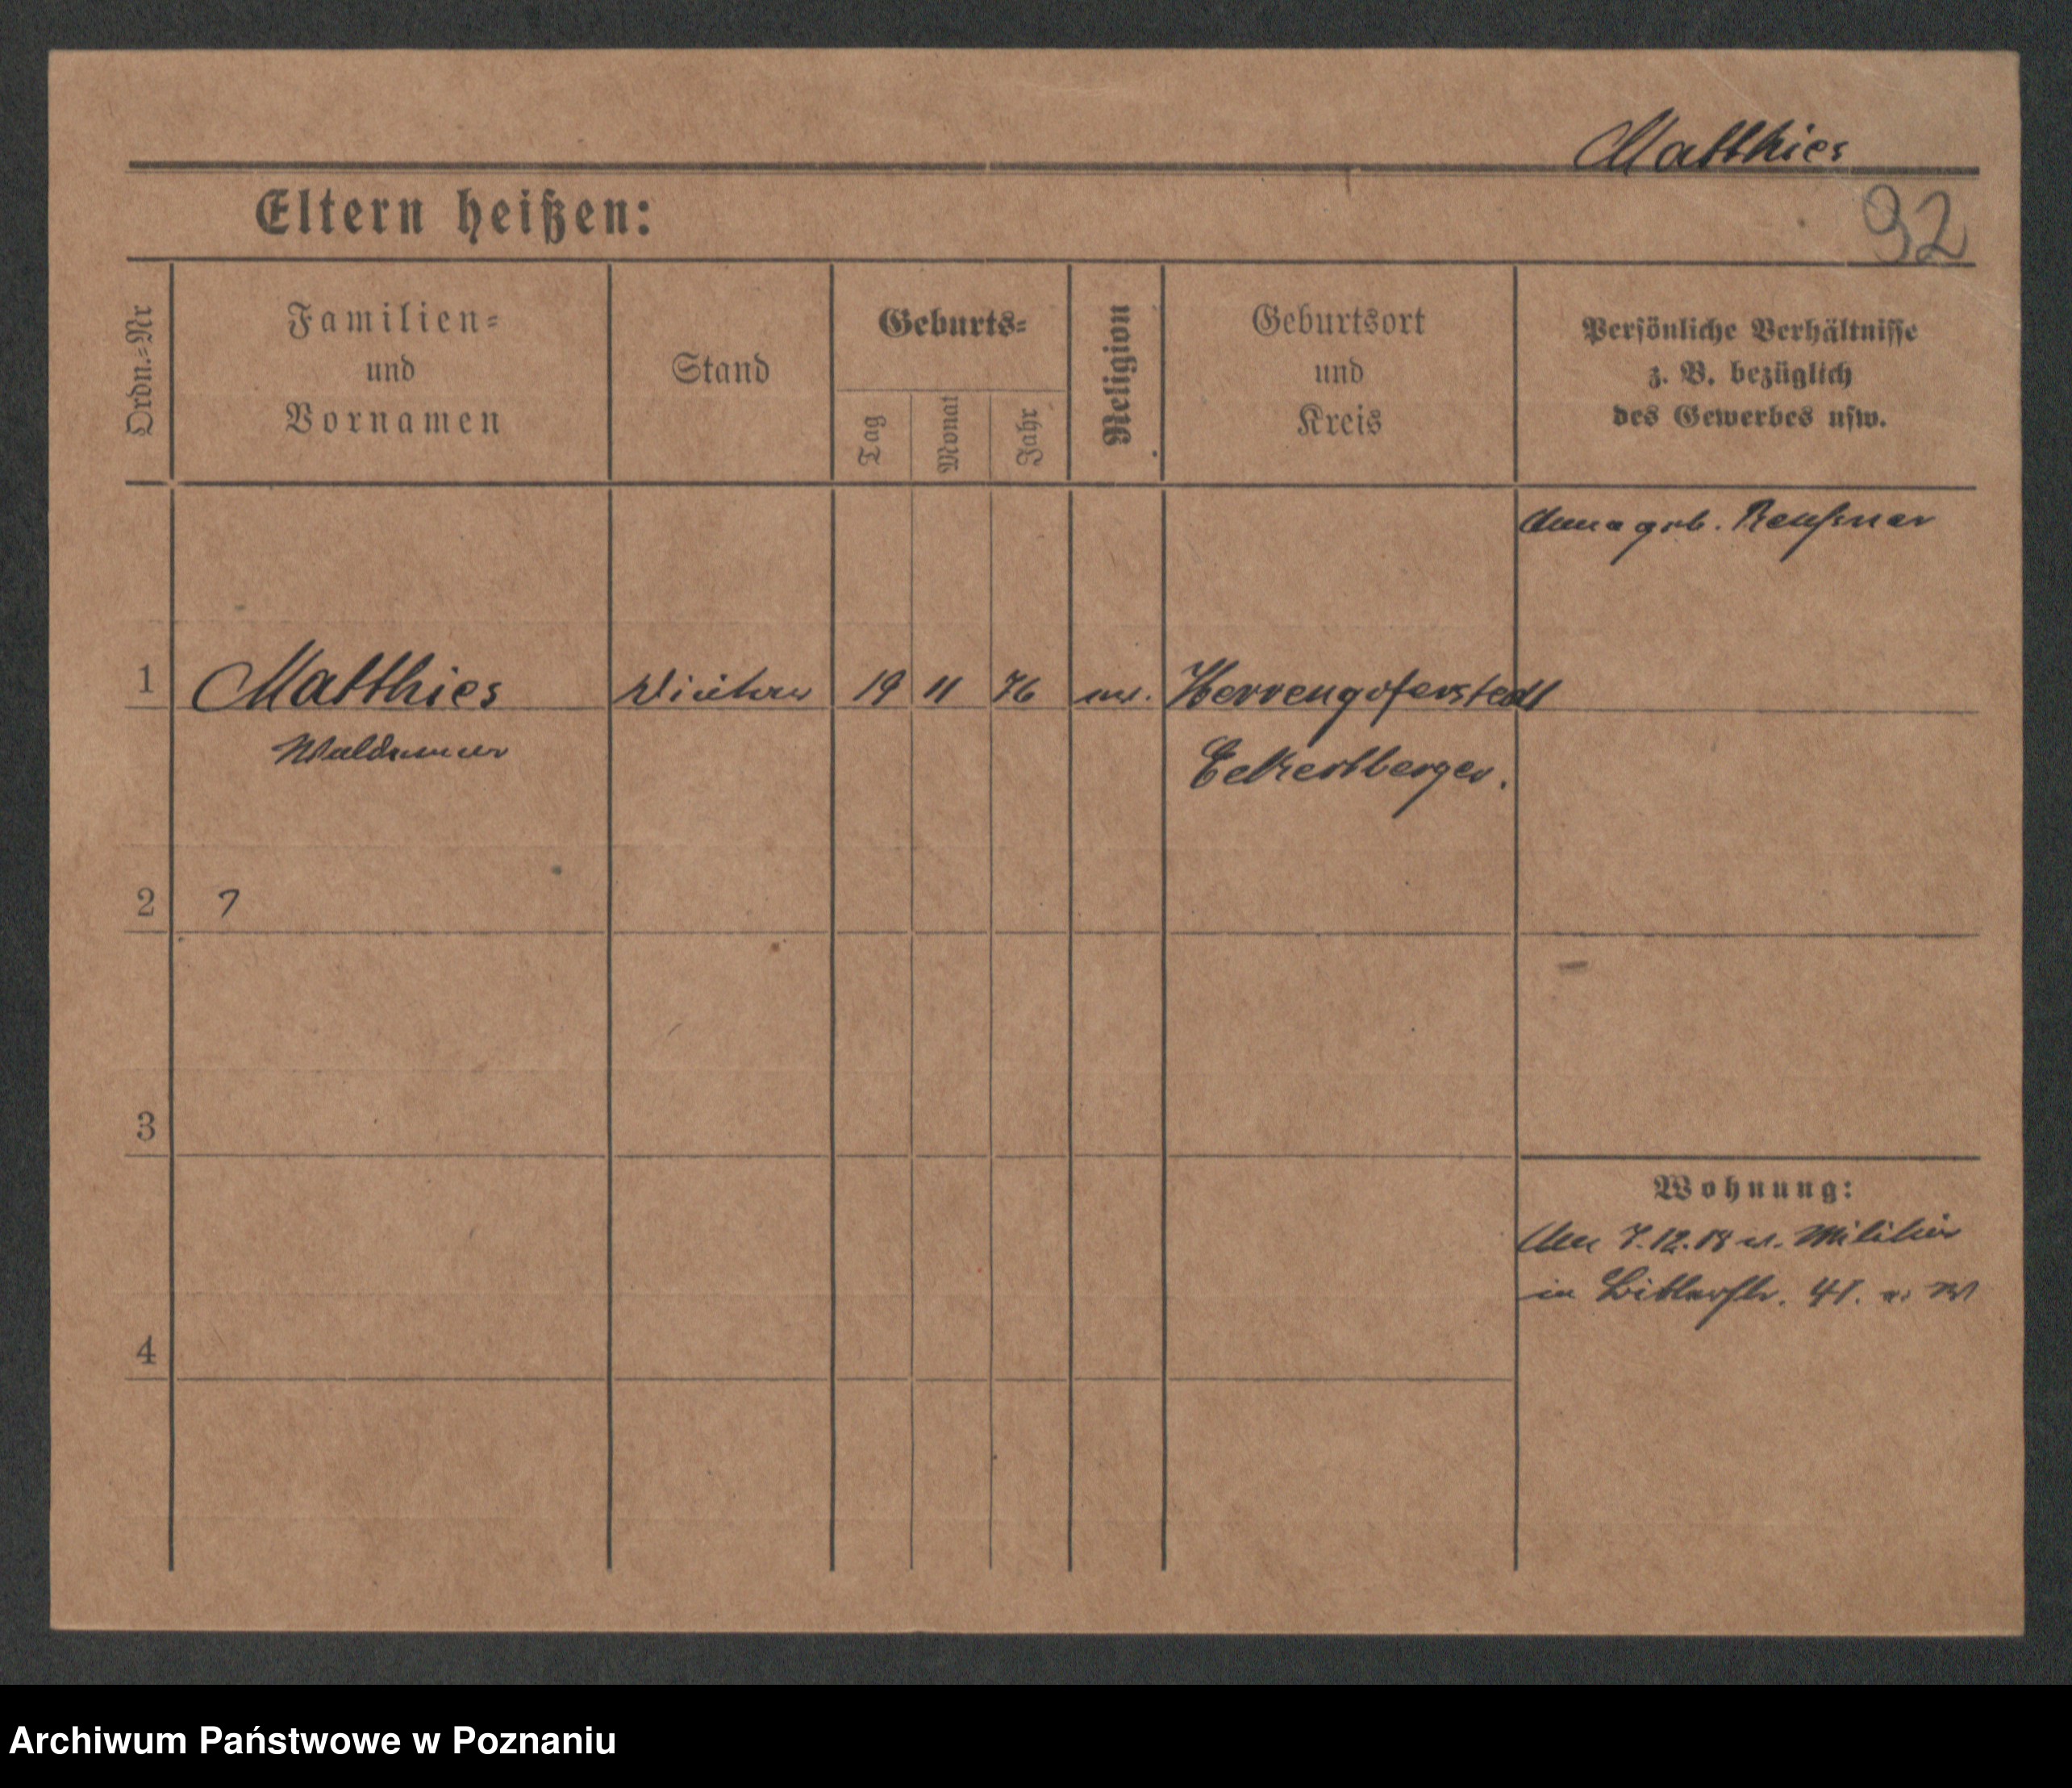 Matthies
Eltern heißen:
92
Ordn.=Nr
Familien=
und
Vornamen
Stand
Geburts=
Tag
Monat
Jahr
Religion
Geburtsort
und
Kreis
Persönliche Verhältnisse
z. B. bezüglich
des Gewerbes usw.
Anna geb.
1 Matthies 19 11 76 Herrengosserstedt
Waldemar
Eckertberger.
2 7
3
Wohnung:
7.12.18 v. Militär
in 41.
4
Archiwum Państwowe w Poznaniu